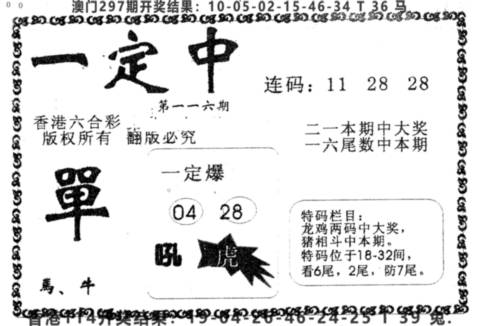 澳门297期开奖结果：10-05-02-15-46-34 T 36 马
一定中
连码：11 28 28
第一一六期
香港六合彩
版权所有 翻版必究
二一本期中大奖
一六尾数中本期
單
一定爆
04 28
吼 虎
馬、牛
特码栏目：
龙鸡两码中大奖，
猪相斗中本期。
特码位于18-32间，
看6尾，2尾，防7尾。
香港114开奖结果：19-04-26-46-24-25 T 39 兔.